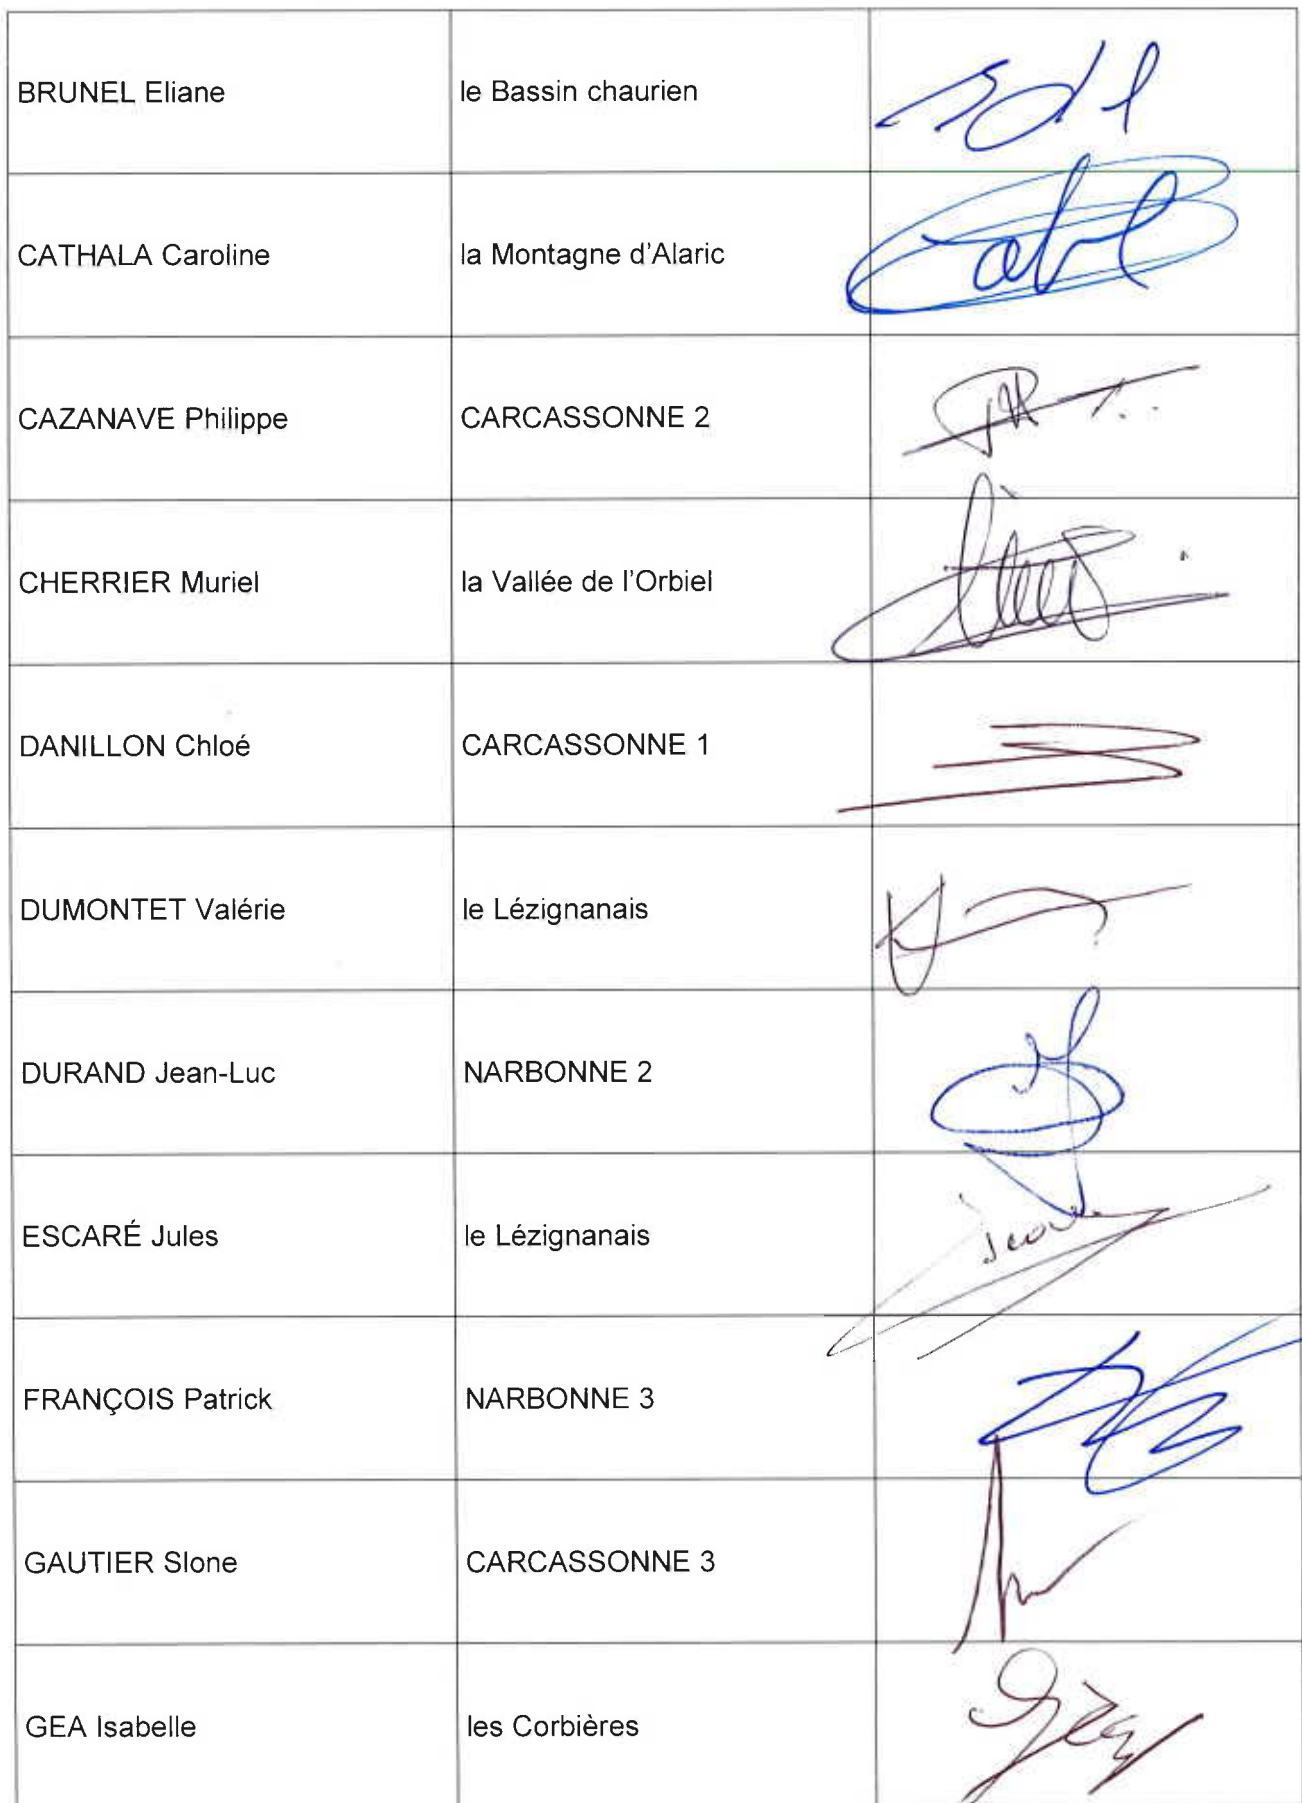 BRUNEL Eliane le Bassin chaurien
CATHALA Caroline la Montagne d'Alaric
CAZANAVE Philippe CARCASSONNE 2
CHERRIER Muriel la Vallée de l'Orbiel
DANILLON Chloé CARCASSONNE 1
DUMONTET Valérie le Lézignanais
DURAND Jean-Luc NARBONNE 2
ESCARÉ Jules le Lézignanais
FRANÇOIS Patrick NARBONNE 3
GAUTIER Slone CARCASSONNE 3
GEA Isabelle les Corbières